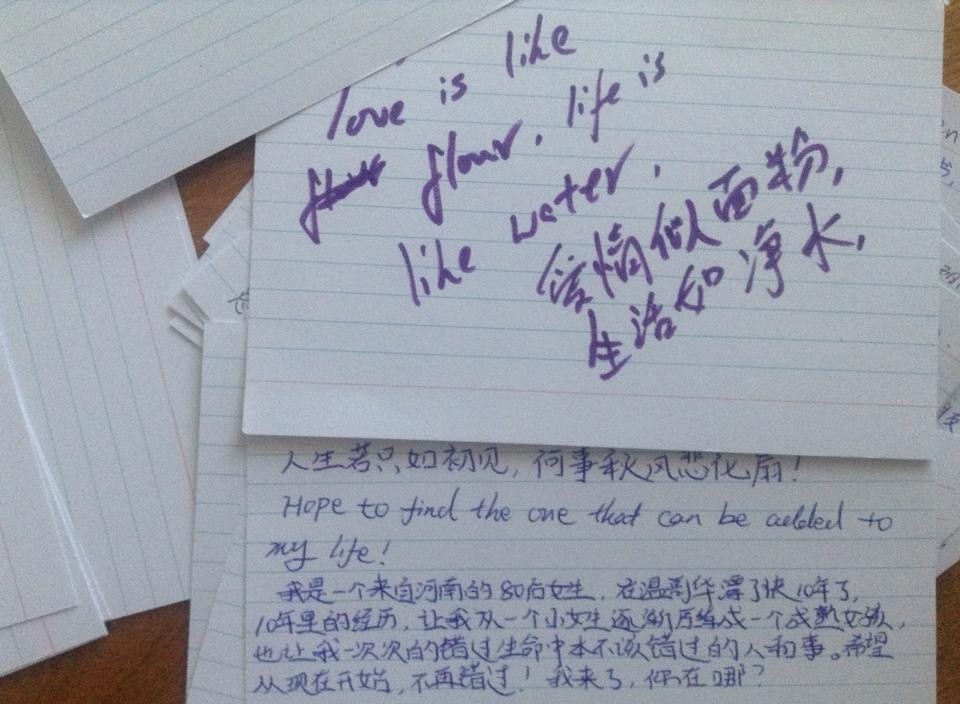 love is like
flour. life is
like water.
爱情似面粉,
生活如净水,
人生若只如初见,何事秋风悲化扇!
Hope to find the one that can be added to
my life!
我是一个来自河南的80后女生,在温哥华漂了快10年了,
10年里的经历,让我从一个小女生逐渐历练成一个成熟女孩,
也让我一次次的错过生命中本不该错过的人和事。希望
从现在开始,不再错过!我来了,你在哪?